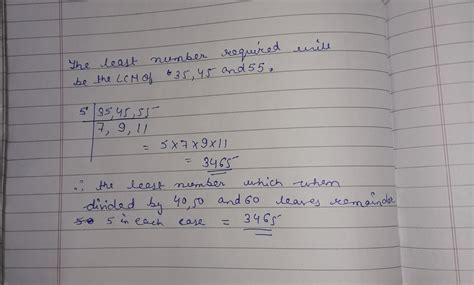 The least number required will
be the LCM of 35, 45 and 55.
5 | 35, 45, 55
7, 9, 11
= 5 x 7 x 9 x 11
= 3465
∴ the least number which when
divided by 40, 50 and 60 leaves remainder
5 in each case = 3465